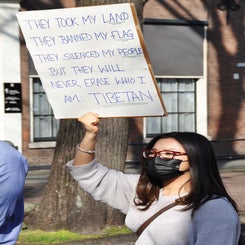 THEY TOOK MY LAND
THEY BANNED MY FLAG
THEY SILENCED MY PEOPLE
BUT THEY WILL
NEVER ERASE WHO I
AM: TIBETAN